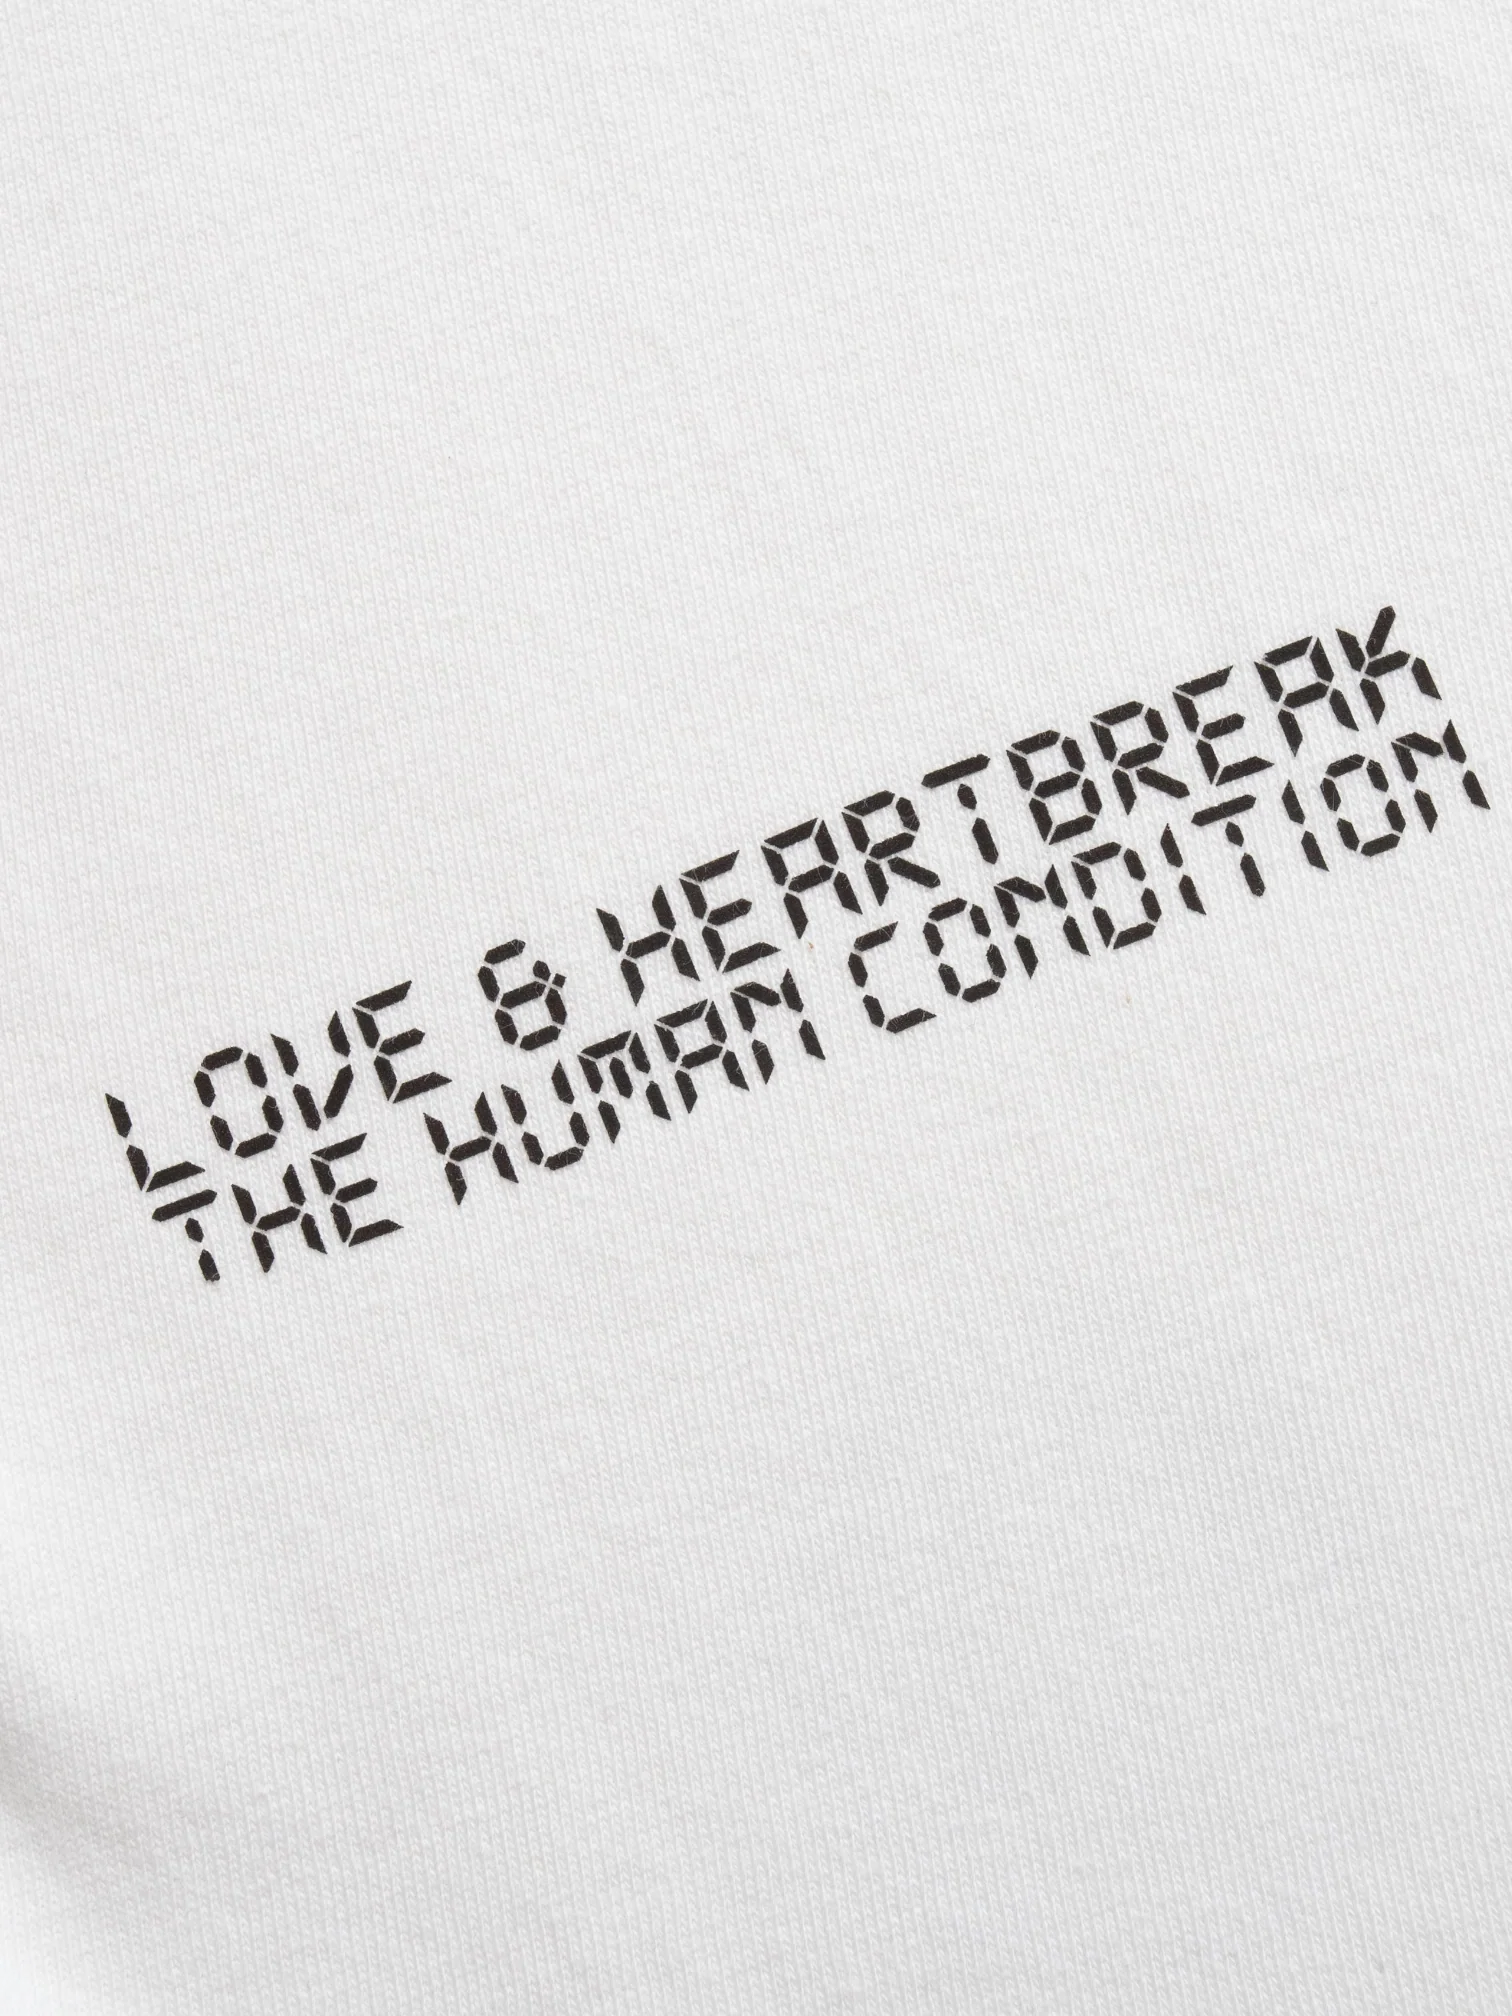 LOVE & HEARTBREAK
THE HUMAN CONDITION